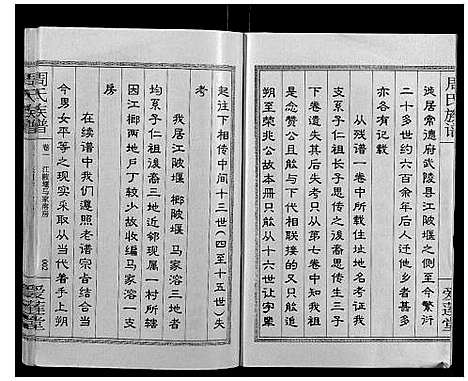 周氏族谱
徙居常德府武陵县江陂堰之侧至今繁衍
二十多世约六百余年后人迁他乡者甚多
亦各有记载
从残谱一卷中所载住址地名考证我
祖思子祥传长子思传之後裔思传生三子
下卷遗失其后失考只从第七卷中知我祖
是念赞公且能与下代相联接的又只能追
朔至荣兆公故本册只能从十六世让字辈
爱莲堂
起往下相传中间十三世(四至十五世)失
考
我居江陂堰 榔陂堰 马家溶三地者
均系子仁祖後裔三地近邻现属一村所辖
因江榔两地户丁较少故收编马家溶一支
房
在续谱中我们遵照老谱宗旨结合当
今男女平等之现实采取从当代着手上朔
周氏族谱
卷一
江陂堰马家溶房
爱莲堂